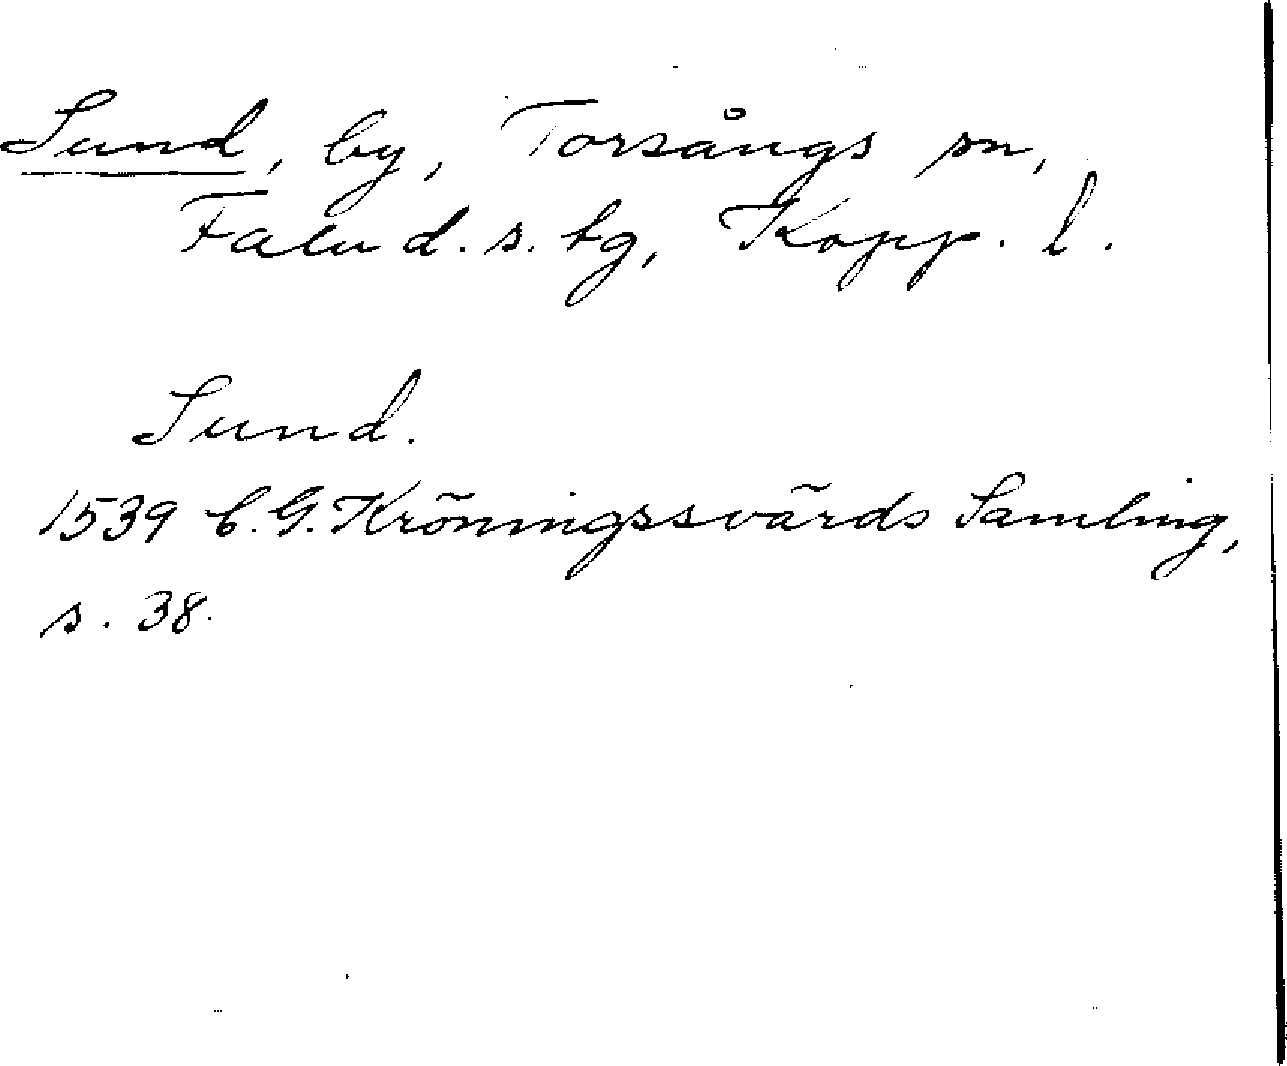 Sund, by, Torsångs sn,
Falu d. s. tg, Kopp. l.
Sund.
1539 C. G. Kröningssvärds Samling,
s. 38.